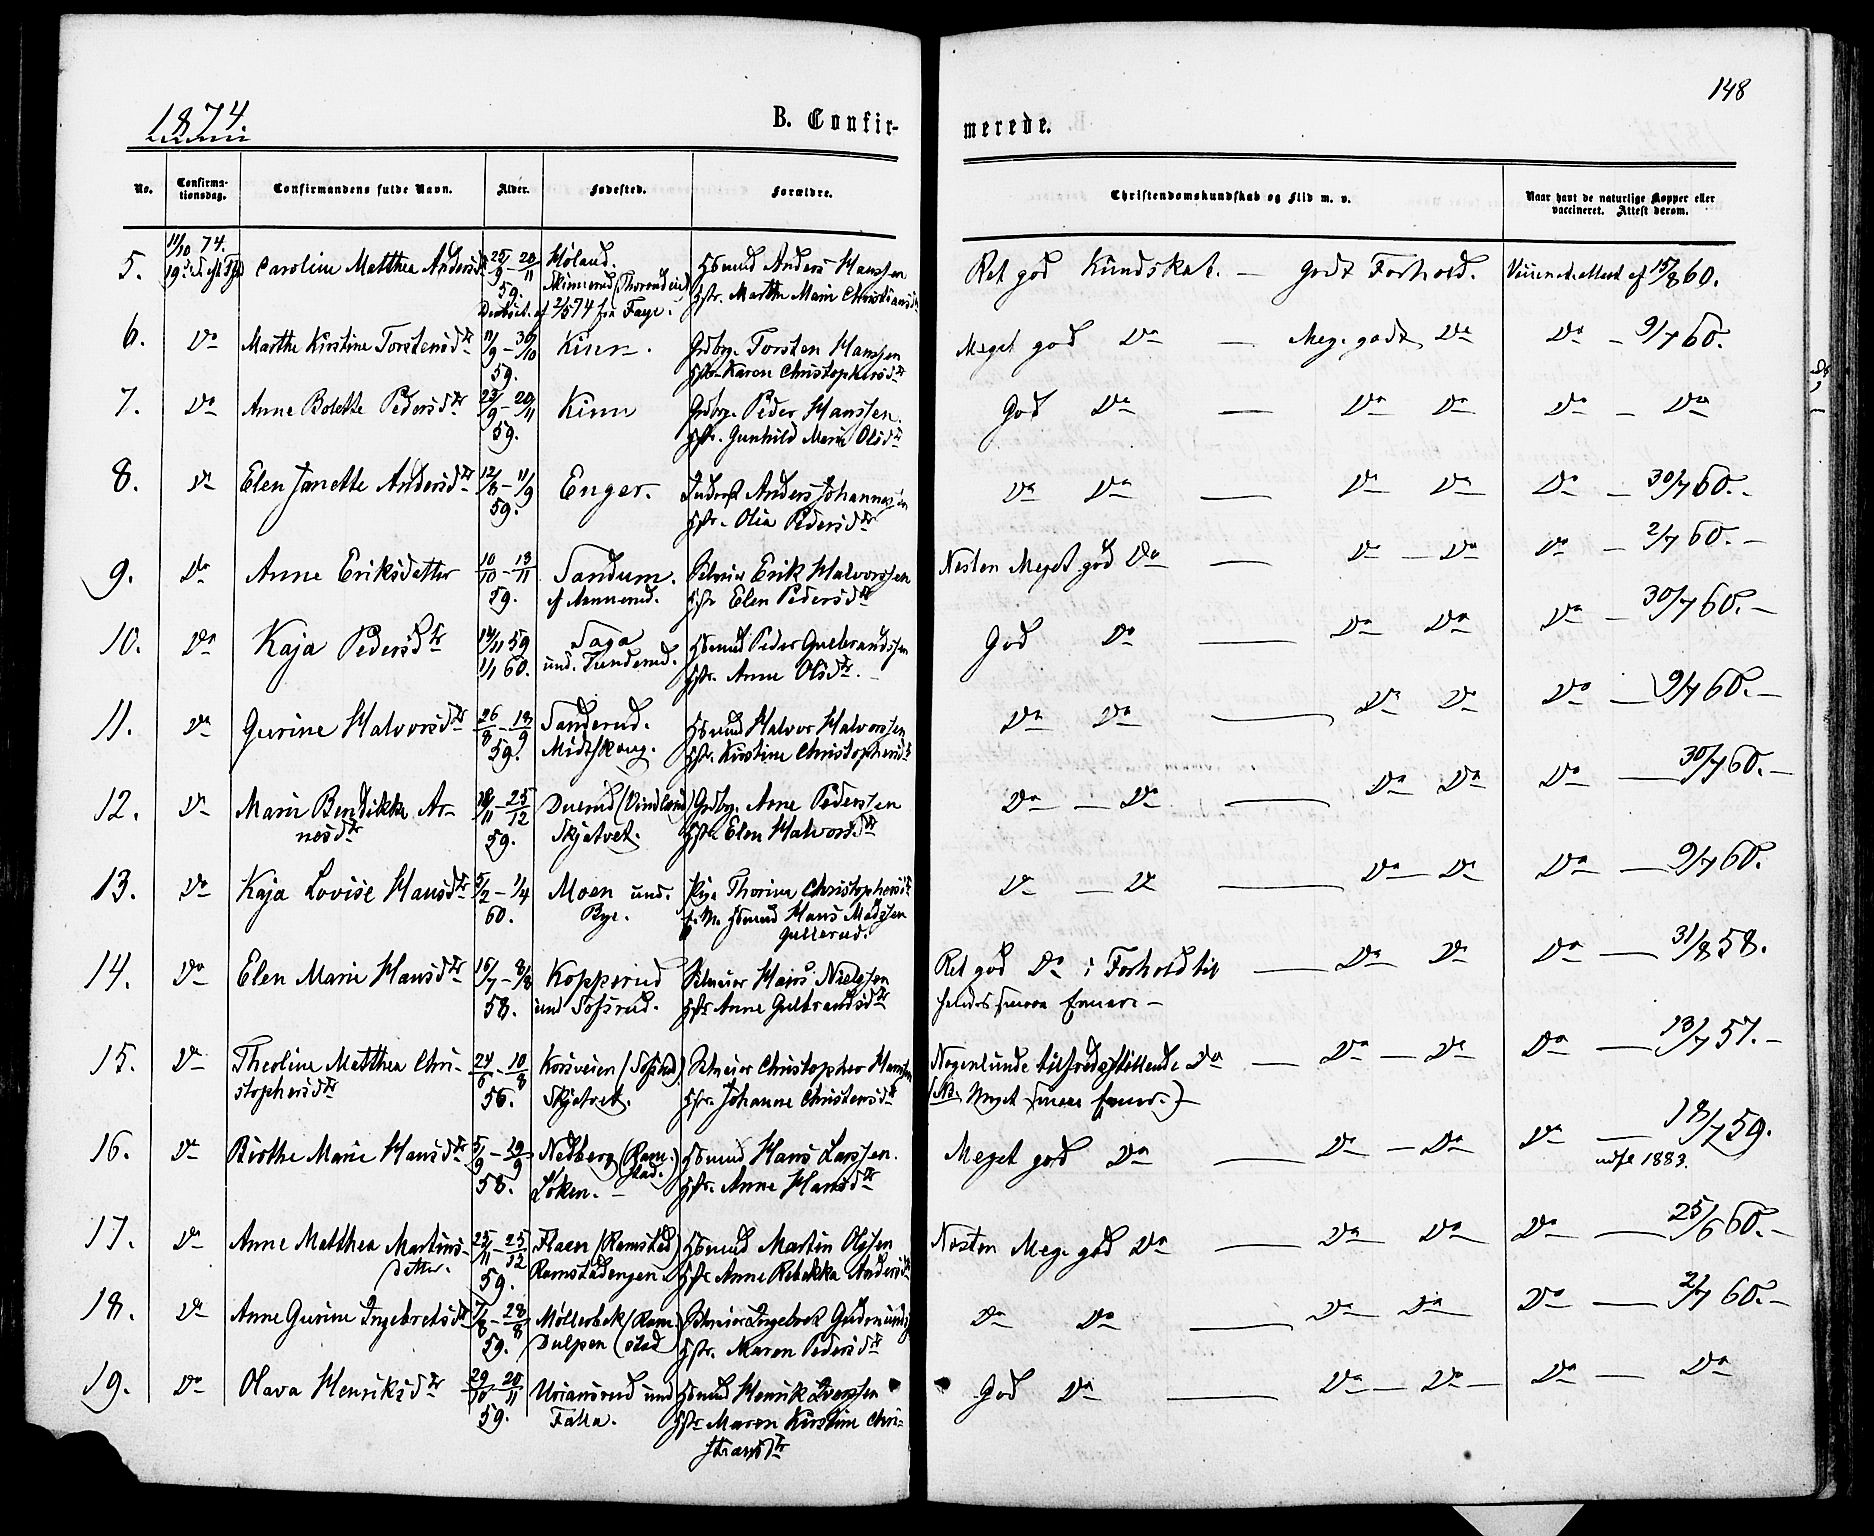 148
1874.
B. Confirmerede.
No. Confirmationsdag. Confirmandens fulde Navn. Alder. Fødested. Forældre. Christendomskundskab og Flid m. v. Naar havt de naturlige Kopper eller vaccineret. Attest derom.
11/10 74.
5. Caroline Matthea Andersd 25/9 - 20/11 59. Høland. Hsmnd Anders Hanssen Hstr. Marthe Marie Christiansd Ret god Kundskab. — godt Forhold. 15/8 60.
6. Do Marthe Kirstine Torstensdtr 11/9 - 30/10 59. Kinn. Grdbrg. Torsten Hanssen Hstr. Karen Christophersdtr Meget god Do — Meg. godt Do Do - 9/7 60.
7. Do Anne Bolette Pedersdtr 23/9 - 20/11 59. Kinn Grdbrg. Peder Hanssen. Hstr. Gunhild Marie Olsdtr God Do — Do Do Do - Do
8. Do Elen Janette Andersdtr 12/8 - 11/9 59. Enger. Inderst Anders Johannessen Hstr. Olia Pedersdtr Do Do — Do Do Do - 30/7 60.-
9. Do Anne Eriksdatter 10/10 - 13/11 59. Sandum. Selveier Erik Halvorssen Hstr Elen Pedersdtr Nesten Meget god Do — Do - Do Do - 2/7 60. -
10. Do Kaja Pedersdtr 59 1/1 60. Taga und. Hsmnd Peder Gulbrandssen Hstr. Anne Olsdtr. God Do — Do Do Do - 30/7 60. -
11. Do Gurine Halvorsdtr 26/8 - 18/9 59. Sanderud. Midtskoug. Hsmnd Halvor Halvorssen Hstr. Kirstine Christophersd Do Do — Do Do Do - 9/7 60. -
12. Do Marie Bendikke Arnesdtr 25/12 59. Duerud Skjatvet. Grdbrg. Arne Pederssen Hstr. Elen Halvorsdtr Do - Do — Do Do Do — 30/7 60. -
13. Do Kaja Lovise Hansdtr 5/2 - 1/4 60. Moen und. Bye. Pige Thorine Christophersdtr Hsmnd Hans Madssen Gullerud. Do - Do — Do - Do Do — 9/7 60.
14. Do Elen Marie Hansdtr 16/7 - 8/8 58. Kopperud und Tofsrud. Selveier Hans Nielssen Hstr Anne Gulbrandsdtr Ret god Do i Forhold til hendes smaa Evner - — Do Do Do — 31/8 58.
15. Do Theoline Matthea Christophersdtr 24/6 - 10/8 56. Korsveien Skjatvet. Selveier Christopher Hanssen Hstr. Johanne Christensdtr Nogenlunde tilfredsstillende Do (NB. Meget smaa Evner.) — Do - Do Do — 13/7 57. -
16. Do Birthe Marie Hansdtr 5/9 - 19/9 58. Nedberg (Ramstad.) Løken. Hsmnd Hans Larssen. Hstr. Anne Hansdtr Meget god Do — Do - Do Do — 18/7 59. udfl 1883.
17. Do Anne Matthea Martinsdatter. 23/11 - 25/12 59. Flaen (Ramstad) Ramstadengen. Hsmnd Martin Olssen Hstr Anne Rebekka Andersdtr Nesten Meg. god Do — Do Do Do — 25/6 60. -
18. Do Anne Gurine Ingebretsdtr 7/8 - 28/8 59. Møllerbek (Ramstad) Dulpen Selveier Ingebret Gudmunds Hstr. Maren Pedersdtr Do Do — Do Do Do — 2/7 60. -
19. Do Olava Henriksdtr 29/10 - 20/11 59. und Falla. Hsmnd Henrik Iverssen Hstr Maren Kirstine Christiansdtr God Do — Do - Do - Do — Do